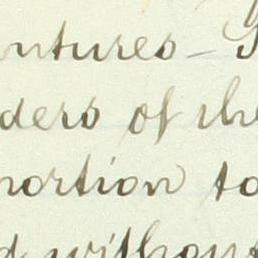 ntures -
ders of the
portion to
d without